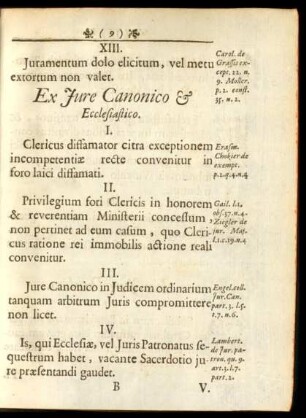 (9)
XIII.
Juramentum dolo elicitum, vel metu
extortum non valet.
Carol. de
Grassis ex-
cept. 22. n.
9. Moller.
p. 2. const.
35. n. 2.
Ex Jure Canonico &
Ecclesiastico.
I.
Clericus diffamator citra exceptionem
incompetentiæ recte convenitur in
foro laici diffamati.
Erasm.
Chokier de
exempt.
p. 2. q. 4. n. 4
II.
Privilegium fori Clericis in honorem
& reverentiam Ministerii concessum
non pertinet ad eum casum, quo Cleri-
cus ratione rei immobilis actione reali
convenitur.
Gail. l. 1.
obs. 37. n. 4.
Ziegler de
jur. Maj.
l. 1. c. 19. n. 4
III.
Jure Canonico in Judicem ordinarium
tanquam arbitrum Juris compromittere
non licet.
Engel. coll.
Jur. Can.
part. 3. l. 5.
t. 7. n. 6.
IV.
Is, qui Ecclesiæ, vel Juris Patronatus se-
questrum habet, vacante Sacerdotio ju-
re præsentandi gaudet.
Lambert.
de Jur. pa-
tron. qu. 9.
art. 3. l. 7.
part. 2.
B V.